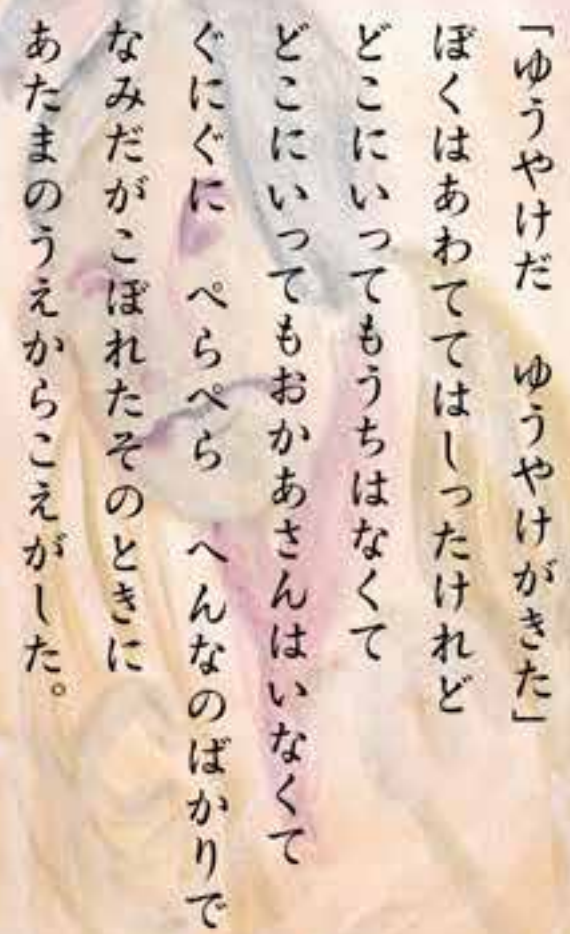 「ゆうやけだ　ゆうやけがきた」
ぼくはあわててはしったけれど
どこにいってもうちはなくて
どこにいってもおかあさんはいなくて
ぐにぐに　ぺらぺら　へんなのばかりで
なみだがこぼれたそのときに
あたまのうえからこえがした。